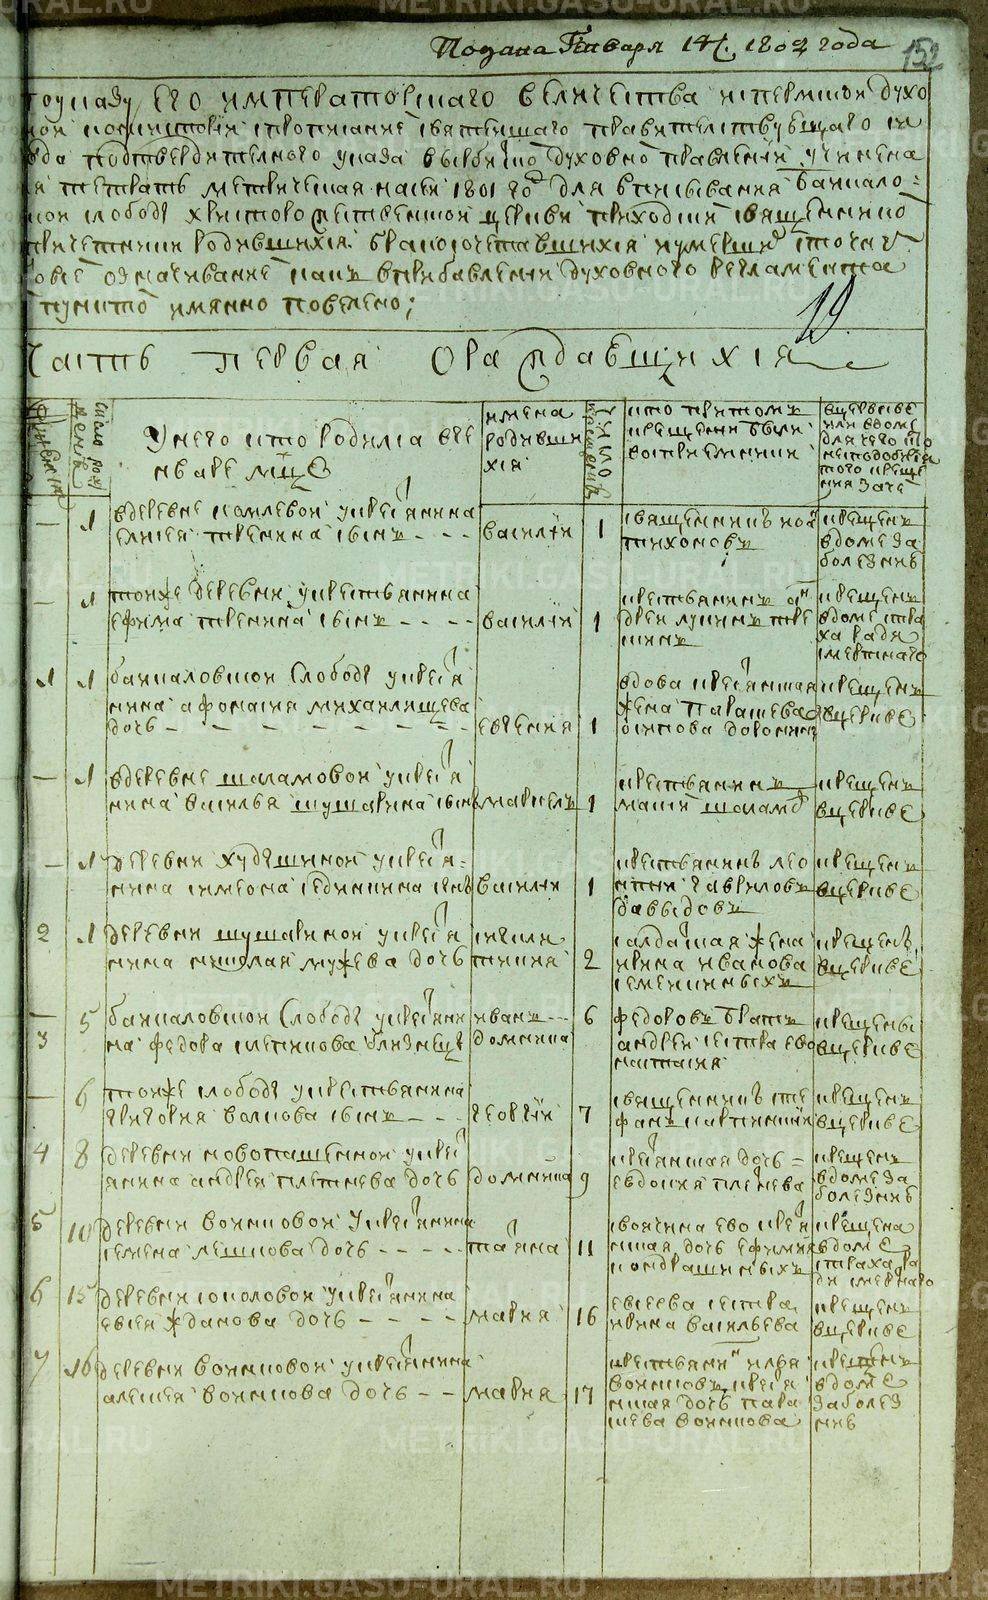 Подана Генваря 14. 1802 года 152
по указу его императорскаго величества и пермской духо
ной консистории прописание святейшаго правителствующаго си
нода подтвердителного указа выбитно духовно правлении учинена
я тетрать метрическая на сей 1801 год для вписывания баикало=
ской слободе христорожественской церкви приходским священнико
причетники родившихся бракосочетавшихся и умерших и точн
овое означивание какъ в прибавлении духовного регламента
пункто имянно повелено;
10
Часть первая О раждавшихся
число рож
дения
У кого кто родился в ге
нваре мце
имена
родивши
хся
кто притомъ
крещении были
восприемники
в церкве
или в доме
для чего то
неподобнея
того креще
ния заче
— 1 в деревне комлевой у крестянина
елисея пренина сынъ - - - василей 1 священникъ ио
тихоновъ крещенъ
в доме за
болезние
— 1 тояже деревни у крестьянина
ефима пренина сынъ - - - - василей 1 крестьянинъ ан
дреи лукинъ пре
нинъ крещенъ
в доме стра
ха ради
смертнаго
1 1 баикаловской слободе у крестя
нина афонасия михаилищева
дочь - - - - - - - - евгения 1 вдова крестянская
жена парасцева
логинова доронин крещенъ
в церкве
— 1 в деревне шаламовой у крестя
нина василья шушарина сынъ маркелъ 1 крестьянинъ
макси шаламо крещенъ
в церкве
— 1 деревни худешиной у крестя=
нина симеона сединкина сынъ василей 1 крестьянинъ лео
нтий гавриловъ
давыдовъ крещенъ
в церкве
2 1 деревни шушариной у крестя
нина николая мужева дочь синкли
тикия 2 салдацкая жена
ирина иванова
семенниныхъ крещенъ
в церкве
—
3 5 баикаловской слободе у крестянин
на федора слепикова близнецы иванъ - -
домника 6 федоровъ братъ
андреи сестра его
настасия крещены
в церкве
— 6 тояже слободе у крестьянина
григория волкова сынъ - - георгии 7 священникъ сте
фанъ карпинский крещенъ
в церкве
4 8 деревни новопашенной у крес
янина андрея плетнева дочь домника 9 крестянская дочь =
евдокия плетнева крещенъ
в доме за
болезние
5 10 деревни воинковой у крестянина
семена лешкова дочь - - - - татиана 11 своячина ево крестя
нская дочь ефимия
кондрашиныхъ крещена
в доме
страха ра
ди смертнаго
6 15 деревни соколовой у крестянина
евсея жданова дочь - - - - мария 16 евсеева сестра
ирина васильева крещенъ
в церкве
7 16 деревни воинковой у крестянина
алексея воинкова дочь - - мария 17 крестьянин илья
воинковъ крестя
нская дочь пара
скева воинкова крещенъ
в доме
за болез
ние